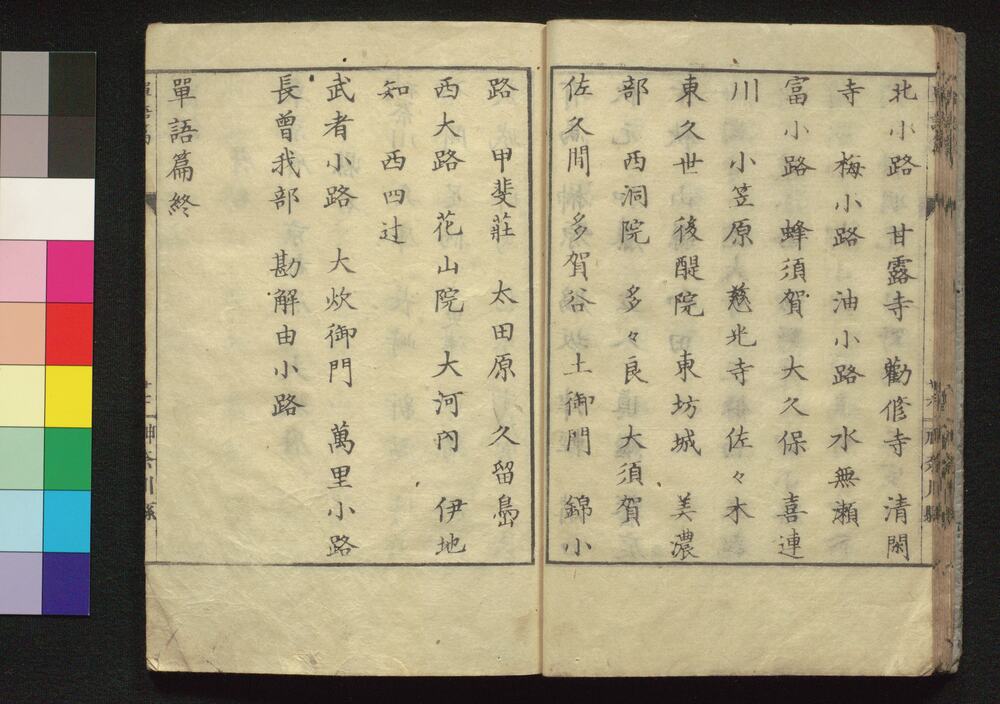 北小路　甘露寺　勸修寺　清閑
寺　梅小路　油小路　水無瀬
富小路　蜂須賀　大久保　喜連
川　小笠原　慈光寺　佐々木
東久世　後醍院　東坊城　美濃
部　西洞院　多々良　大須賀
佐久間　多賀谷　土御門　錦小
路　甲斐莊　太田原　久留島
西大路　花山院　大河内　伊地
知　西四辻
武者小路　大炊御門　萬里小路
長曾我部　勘解由小路
單語篇終
神奈川縣